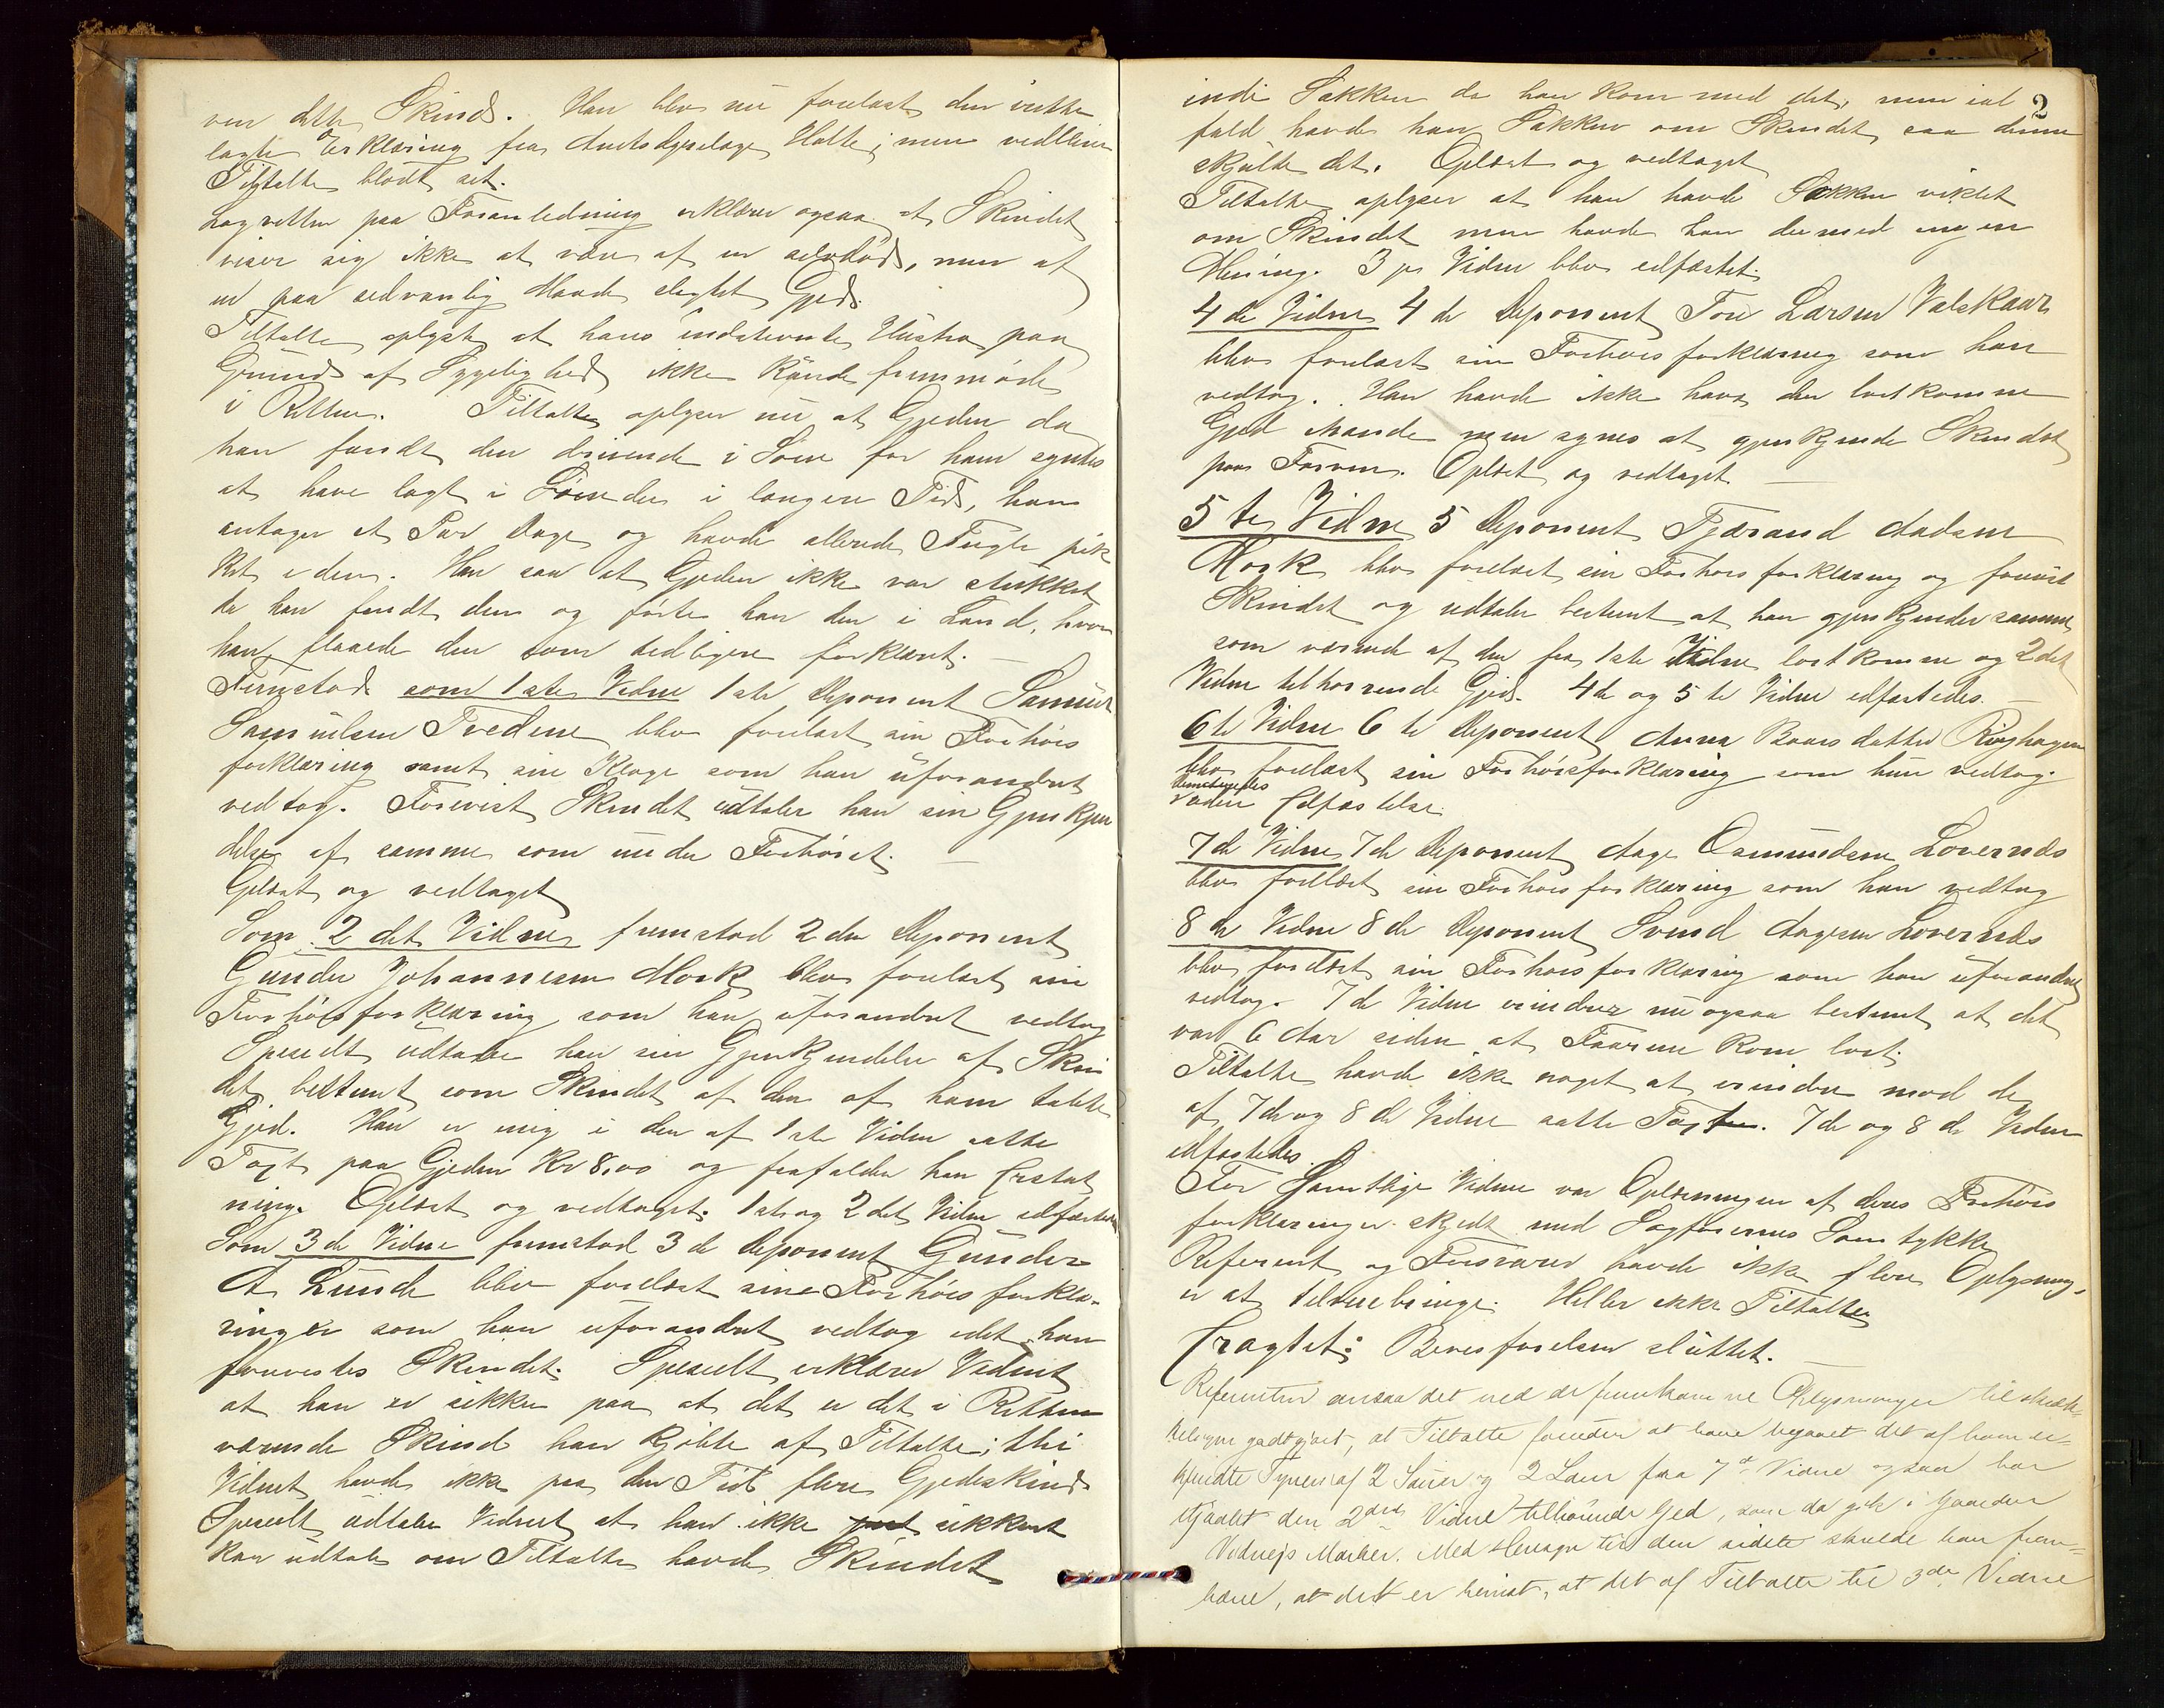 ven dette Skind. Han blev nu forelæst den indkke
lagte Erklæring fra Amtsdyrlæge Holte, men vedblev
Tiltalte blodt set.
Lagretten paa Foranledning erklærer ogsaa at Skindet
viser sig ikke at være af en selvdød, men af
en paa sedvanlig Maade slagtet Gjed.
Tiltalte oplyste at hans indstevnte Hustru paa
Grund af Sygelighed ikke kunde fremmøde
i Retten. Tiltalte oplyser nu at Gjeden da
han fandt den drivende i Søen for ham syntes
at have lagt i Søen der i længere Tid, han
antager et Par Dage og havde allerede Fugle pik
ket i den. Han saa at Gjeden ikke var stukket
da han fandt den og førte han den i Land, hvor
han flaaede den som tidligere forklaret. —
Fremstod som 1ste Vidne 1ste Deponent Samuel
Samuelsen Tredine blev forelæst sin Forhørs
forklaring samt sin Klage som han uforandret
vedtog. Forevist Skindet udtaler han sin Gjenkjen
delse af samme som under Forhøret. —
Oplæst og vedtaget
Som 2det Vidne fremstod 2den Deponent
Gunder Johannesen Mork blev forelæst sin
Forhørsforklaring som han uforandret vedtog
Specielt udtaler han sin Gjenkjendelse af Skin
det bestemt som Skindet af den af ham tabte
Gjed. Han er enig i den af 1ste Vidne satte
Taxt paa Gjeden Kr 8,00 og frafalder han Erstat
ning. Oplæst og vedtaget. 1ste og 2det Vidne edfæstedes
Som 3de Vidne fremstod 3de Deponent Gunder
A Lunde blev forelæst sine Forhørs forkla-
ringer som han uforandret vedtog idet han
forevistes Skindet. Specielt erklærer Vidnet
at han er sikker paa at det er det i Retten
værende Skind han kjøbte af Tiltalte; thi
Vidnet havde ikke paa den Tid flere Gjedeskind.
Specielt udtaler Vidnet at han ikke sikkert
kan udtale om Tiltalte havde Skindet
2
indi Sækken da han kom med det, men ial
fald havde han Sækken om Skindet saa denne
skjulte det. Oplæst og vedtaget
Tiltalte oplyser at han havde Sækken viklet
om Skindet men havde han dermed ingen
Mening. 3je Vidne blev edfæstet.
4de Vidne 4de Deponent Tore Larsen Valskaar
blev forelæst sin Forhørsforklaring som han
vedtog. Han havde ikke havt den bortkomne
Gjed ihænde men synes at gjenkjende Skindet
paa Farven. Oplæst og vedtaget. —
5te Vidne 5 Deponent Tjærand Aadsen
Mork blev forelæst sin Forhørsforklaring og forevist
Skindet og udtaler bestemt at han gjenkjender samme
som værende af den fra 1ste Vidne bortkomne og 2det
Vidne tilhørende Gjed. 4de og 5te Vidne edfæstedes. —
6te Vidne 6te Deponent Anna Baarsdatter Ringhagen
blev forelæst sin Forhørsforklaring som hun vedtog.
Demitteredes
uden Edfæstelse.
7de Vidne 7de Deponent Aage Osmundsen Loverends
blev forelæst sin Forhørsforklaring som han vedtog
8de Vidne 8de Deponent Svend Aagesen Loverends
blev forelæst sin Forhørsforklaring som han uforandret
vedtog. 7de Vidne erindrer nu ogsaa bestemt at det
var 6 Aar siden at Faarene kom bort.
Tiltalte havde ikke noget at erindre mod de
af 7de og 8de Vidne satte Taxter. 7de og 8de Vidne
edfæstedes.
For Samtlige Vidne var Oplæsningen af deres Forhørs
forklaringer skjedt med Sagførernes Samtykke
Referent og Forsvarer havde ikke flere Oplysning,
er at tilveiebringe. Heller ikke Tiltalte
Eragtet: Bevisførelsen sluttet. —
Referenten ansaa det ved de fremkomne Oplysninger tilstræk-
keligen godtgjort, at Tiltalte foruden at have begaaet det af ham be-
kjendte Tyveri af 2 Sauer og 2 Lam fra 7de Vidne ogsaa har
stjaalet den 2det Vidne tilhørende Gjed, som da gik i
Vidnes Marker. Med Hensyn til den sidste skulde han frem-
hæve, at det er bevist, at det af Tiltalte til 3de Vidne